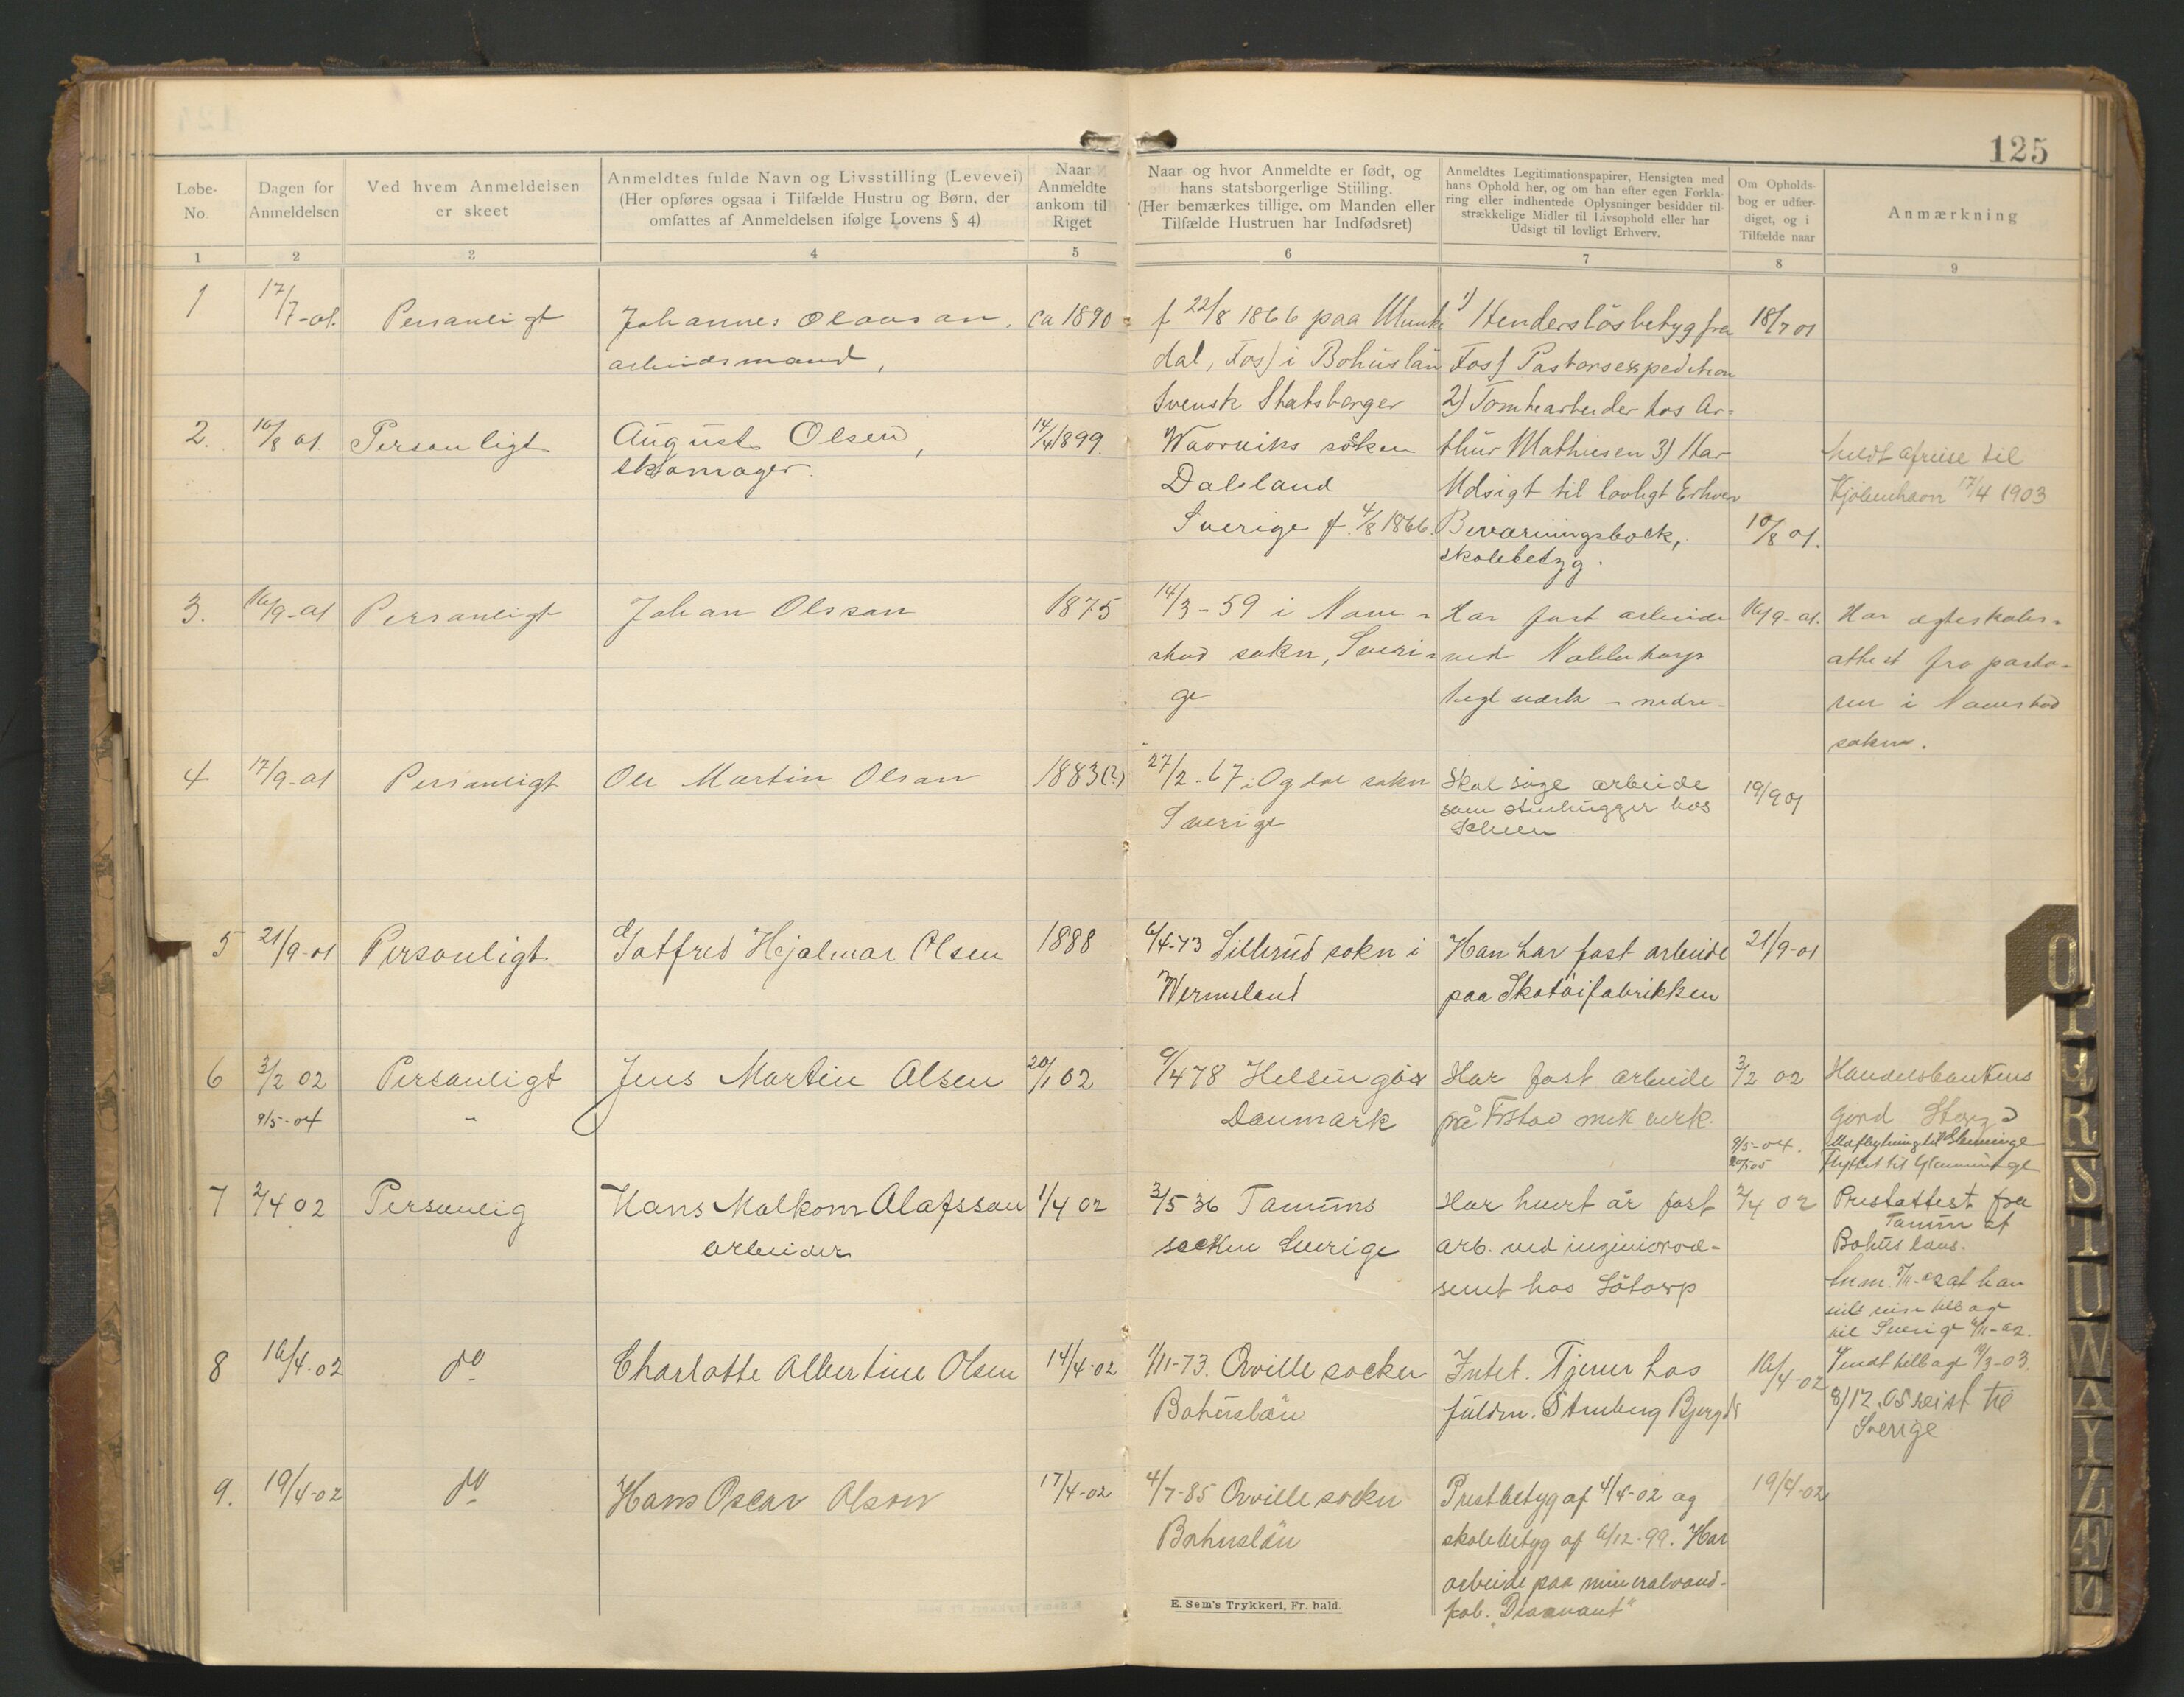 125
Løbe-
No.
Dagen for
Anmeldelsen
Ved hvem Anmeldelsen
er skeet
Anmeldtes fulde Navn og Livsstilling (Levevei)
(Her opføres ogsaa i Tilfælde Hustru og Børn, der
omfattes af Anmeldelsen ifølge Lovens § 4)
Naar
Anmeldte
ankom til
Riget
Naar og hvor Anmeldte er født, og
hans statsborgerlige Stiiling.
(Her bemærkes tillige, om Manden eller
Tilfælde Hustruen har Indfødsret)
Anmeldtes Legitimationspapirer, Hensigten med
hans Ophold her, og om han efter egen Forkla-
ring eller indhentede Oplysninger besidder til-
strækkelige Midler til Livsophold eller har
Udsigt til lovligt Erhverv.
Om Opholds-
bog er udfær-
diget, og i
Tilfælde naar
Anmærkning
1 2 3 4 5 6 7 8 9
1
17/7-01.
Personligt
Johannes Olausson,
arbeidsmand,
ca 1890
f 22/8 1866 paa Munke
dal, Foss i Bohuslän
Svensk Statsborger
1) Hinderslösbetyg fra
Foss Pastorsexpedition
2) Tomtearbeider hos Ar=
thur Mathiesen 3) Har
Udsigt til lovligt Erhverv
18/7 01
2.
10/8 01.
Personligt
August Olsen,
skomager.
14/4 1899.
Waarviks socken
Dalsland
Sverige f. 4/8 1866.
Beværningsbock,
skolebetyg.
10/8 01.
meldt afreise til
Kjöbenhavn 17/4 1903
3.
16/9-01
Personligt
Johan Olsson
1875
14/3-59 i Nave=
stad sokn, Sveri=
ge
Har fast arbeide
ved
teglverk - nedre-
16/9-01.
Har ægteskabs=
attest fra pasto=
ren i Navestad
sokn.
4
17/9-01
Personligt
Ole Martin Olsen
1883(?)
27/2-67 i Ogdal sokn
Sverige
Skal söge arbeide
som stenhugger hos
19/9 01
5
21/9-01
Personligt
Gotfred Hjalmar Olsen
1888
6/4-73 Sillerud sokn i
Wermeland
Han har fast arbeide
paa Skotöifabrikken
21/9-01
6
3/2 02
9/5-04
Personligt
"
Jens Martin Olsen
20/1 02
9/4 78 Helsingør
Danmark
Har fast arbeide
på Fr.stad mek verk.
3/2 02
9/5-04.
Handelsbankens
gård Storg
Udflytning til Glemminge
flyttet til Glemminge
7
2/4 02
Personlig
Hans Malkom Olafsson
arbeider
1/4 02
3/5 36 Tanums
socken Sverige
Har hvert år fast
arb. ved ingeniørvæ-
senet hos Sötorp
2/4 02
Prestattest fra
Tanum af
Bohus läns.
Anm. 5/11-02 at han
vil reise tilbage
til Sverige 6/11-02.
8
16/4-02
do
Charlotte Albertine Olsen
14/4-02
1/11-73. Qville socken
Bohuslän
Intet. Tjener hos
fuldm. Stenberg Bjergd
16/4-02
Vendt tilbage 10/3-03.
8/12.05 reist til
Sverige
9.
19/4-02
do
Hans Oscar Olson
17/4-02
4/7-85 Qville sockn
Bohuslän
Prestbetyg af 4/4-02 og
skolebetyg af 6/12-99. Har
arbeide paa mineralvand-
fab. "Diamant"
19/4-02
E. Sem's Trykkeri, Fr. hald.
O
P
R
S
T
U
W
Y
Z
Æ
Ø